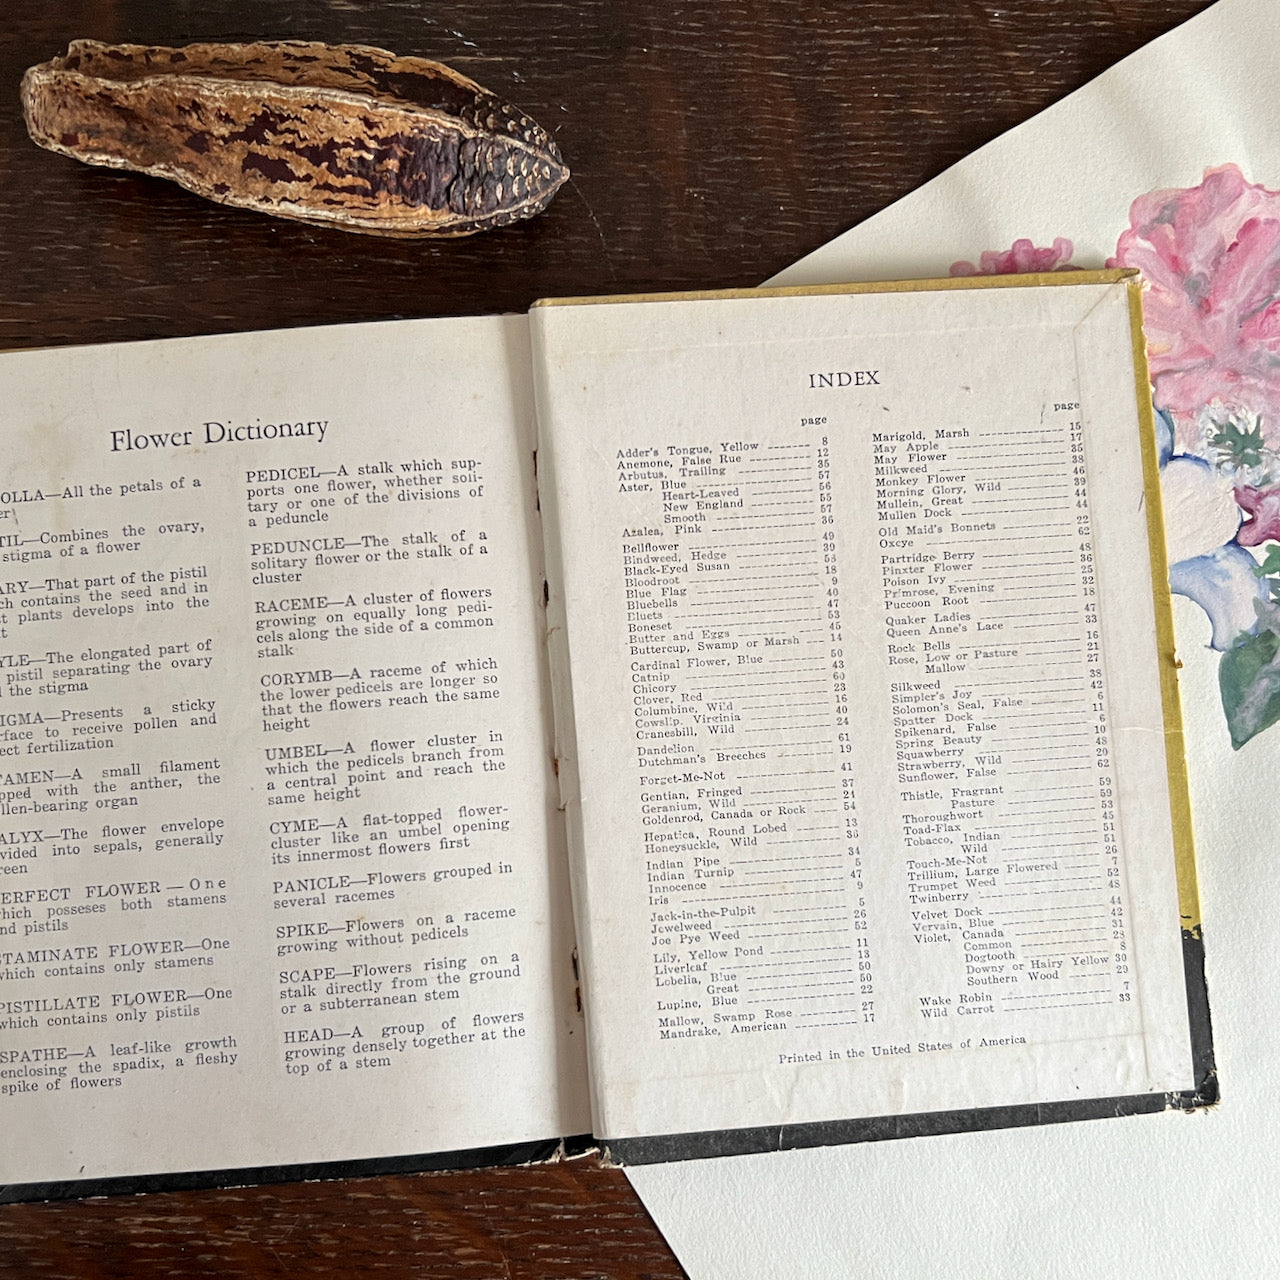 Flower Dictionary
OLLA—All the petals of a
er
TIL—Combines the ovary,
stigma of a flower
ARY—That part of the pistil
ch contains the seed and in
t plants develops into the
t
YLE—The elongated part of
pistil separating the ovary
the stigma
IGMA—Presents a sticky
rface to receive pollen and
ect fertilization
TAMEN—A small filament
pped with the anther, the
llen-bearing organ
ALYX—The flower envelope
vided into sepals, generally
reen
ERFECT FLOWER—One
hich posseses both stamens
nd pistils
STAMINATE FLOWER—One
which contains only stamens
PISTILLATE FLOWER—One
which contains only pistils
SPATHE—A leaf-like growth
enclosing the spadix, a fleshy
spike of flowers
PEDICEL—A stalk which sup-
ports one flower, whether soli-
tary or one of the divisions of
a peduncle
PEDUNCLE—The stalk of a
solitary flower or the stalk of a
cluster
RACEME—A cluster of flowers
growing on equally long pedi-
cels along the side of a common
stalk
CORYMB—A raceme of which
the lower pedicels are longer so
that the flowers reach the same
height
UMBEL—A flower cluster in
which the pedicels branch from
a central point and reach the
same height
CYME—A flat-topped flower-
cluster like an umbel opening
its innermost flowers first
PANICLE—Flowers grouped in
several racemes
SPIKE—Flowers on a raceme
growing without pedicels
SCAPE—Flowers rising on a
stalk directly from the ground
or a subterranean stem
HEAD—A group of flowers
growing densely together at the
top of a stem
INDEX
page
Adder's Tongue, Yellow 8
Anemone, False Rue 12
Arbutus, Trailing 35
Aster, Blue 57
Heart-Leaved 56
New England 55
Smooth 57
Azalea, Pink 36
Bellflower 49
Bindweed, Hedge 39
Black-Eyed Susan 53
Bloodroot 18
Blue Flag 9
Bluebells 40
Bluets 47
Boneset 53
Butter and Eggs 45
Buttercup, Swamp or Marsh 14
Cardinal Flower, Blue 50
Catnip 43
Chicory 60
Clover, Red 23
Columbine, Wild 16
Cowslip, Virginia 40
Cranesbill, Wild 24
Dandelion 61
Dutchman's Breeches 19
Forget-Me-Not 41
Gentian, Fringed 37
Geranium, Wild 24
Goldenrod, Canada or Rock 54
Hepatica, Round Lobed 13
Honeysuckle, Wild 36
Indian Pipe 34
Indian Turnip 5
Innocence 47
Iris 9
Jack-in-the-Pulpit 5
Jewelweed 26
Joe Pye Weed 52
Lily, Yellow Pond 11
Liverleaf 13
Lobelia, Blue 50
Great 50
Lupine, Blue 22
Mallow, Swamp Rose 27
Mandrake, American 17
page
Marigold, Marsh 15
May Apple 17
May Flower 35
Milkweed 38
Monkey Flower 46
Morning Glory, Wild 39
Mullein, Great 44
Mullen Dock 44
Old Maid's Bonnets 22
Oxeye 62
Partridge Berry 48
Pinxter Flower 36
Poison Ivy 25
Primrose, Evening 32
Puccoon Root 18
Quaker Ladies 47
Queen Anne's Lace 33
Rock Bells 16
Rose, Low or Pasture 21
Mallow 27
Silkweed 38
Simpler's Joy 42
Solomon's Seal, False 6
Spatter Dock 11
Spikenard, False 6
Spring Beauty 10
Squawberry 48
Strawberry, Wild 20
Sunflower, False 62
Thistle, Fragrant 59
Pasture 59
Thoroughwort 53
Toad-Flax 45
Tobacco, Indian 51
Wild 51
Touch-Me-Not 26
Trillium, Large Flowered 7
Trumpet Weed 52
Twinberry 48
Velvet Dock 44
Vervain, Blue 42
Violet, Canada 31
Common 28
Dogtooth 8
Downy or Hairy Yellow 30
Southern Wood 29
Wake Robin 7
Wild Carrot 33
Printed in the United States of America